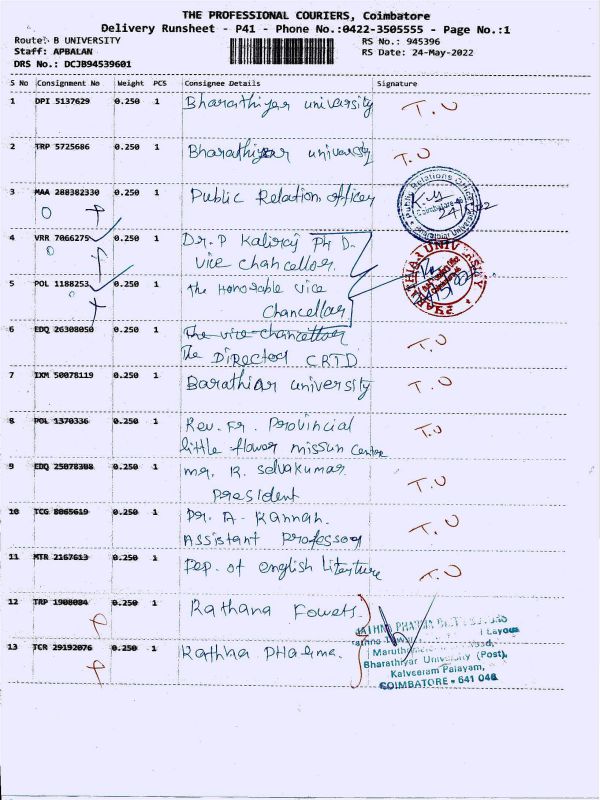 THE PROFESSIONAL COURIERS, Coimbatore
Delivery Runsheet - P41 - Phone No.:0422-3505555 - Page No.:1
Route: B UNIVERSITY
RS No.: 945396
Staff: APBALAN
RS Date: 24-May-2022
DRS No.: DCJB94539601
S No Consignment No Weight PCS Consignee Details Signature
1 DPI 5137629 0.250 1 Bharathiyar university T.U
2 TRP 5725686 0.250 1 Bharathiyar university T.U
3 MAA 288382330 0.250 1 Public Relation officer
Public Relations Officer
Coimbatore
4 VRR 7066275 0.250 1 Dr. P Kaliraj Ph D.
vice chancellor.
5 POL 1188253 0.250 1 The Honorable vice
Chancellor
6 EDQ 26308050 0.250 1 The vice chancellor
The Director CRTD T.U
7 IXM 50078119 0.250 1 Barathiar university T.U
8 POL 1370336 0.250 1 Rev. Fr. Provincial T.U
little flower missun Centre
9 EDQ 25078308 0.250 1 mr. R. Selvakumar
President T.U
10 TCG 8065619 0.250 1 Dr. A. Kannan.
Assistant Professor T.U
11 MTR 2167613 0.250 1 Dep. of english Literture T.U
12 TRP 1908084 0.250 1 Rathana Fowets
13 TCR 29192076 0.250 1 Rathna PHarma.
Bharathiyar University (Post),
Kalveeram Palayam,
COIMBATORE - 641 046